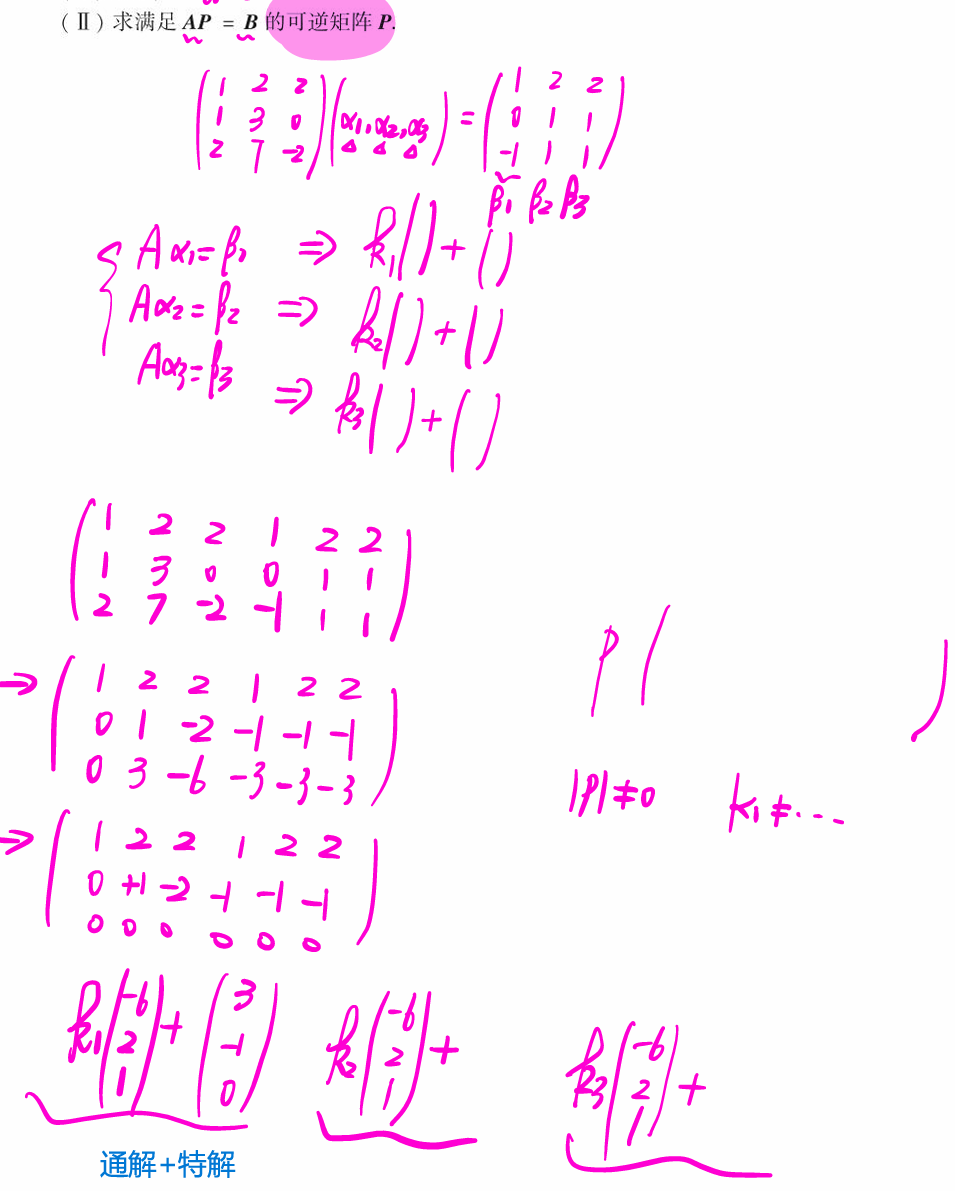 (Ⅱ) 求满足 AP = B 的可逆矩阵 P.
1 2 2 1 2 2
1 3 0 (α₁, α₂, α₃) = 0 1 1
2 7 -2 -1 1 1
β₁ β₂ β₃
Aα₁=β₁ ⇒ k₁( )+( )
Aα₂=β₂ ⇒ k₂( )+( )
Aα₃=β₃ ⇒ k₃( )+( )
1 2 2 1 2 2
1 3 0 0 1 1
2 7 -2 -1 1 1
P ( )
→ 1 2 2 1 2 2
0 1 -2 -1 -1 -1
0 3 -6 -3 -3 -3
|P|≠0 k₁≠...
→ 1 2 2 1 2 2
0 +1 -2 -1 -1 -1
0 0 0 0 0 0
k₁(-6 2 1)+(3 -1 0) k₂(-6 2 1)+ k₃(-6 2 1)+
通解+特解